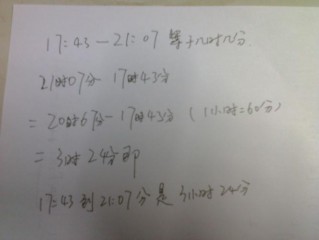 17:43—21:07 等于几时几分
21时07分－17时43分
＝20时67分－17时43分（1小时＝60分）
＝3时24分即
17:43到21:07分是3小时24分